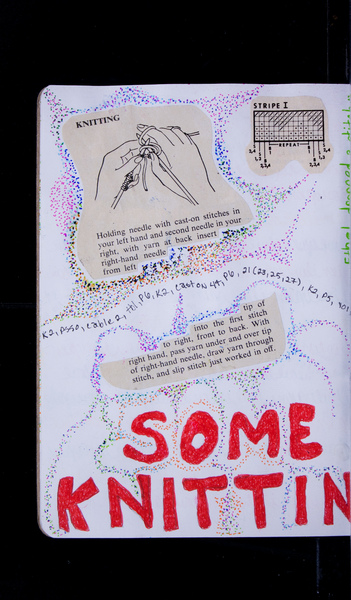 KNITTING
STRIPE I
REPEAT
2,4 2,4
1,3 1,3
2,3,4 2,3,4
Holding needle with cast-on stitches in
your left hand and second needle in your
right, with yarn at back insert
right-hand needle
from left
K2, P550, cable 2, P6, K2, cast on 41, P6, 21 (23, 25, 27), K2, P5,
into the first tip of
to right, front to back. With stitch
right hand, pass yarn under and over tip
of right-hand needle, draw yarn through
stitch, and slip stitch just worked in off.
SOME
KNITTIN
dropped a stitch